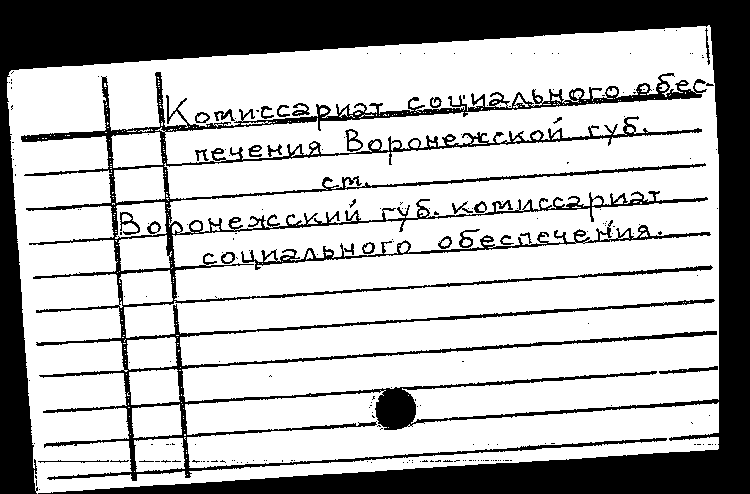 Комиссариат социального обес-
печения Воронежской губ.
см.
Воронежсский губ. комиссариат
социального обеспечения.